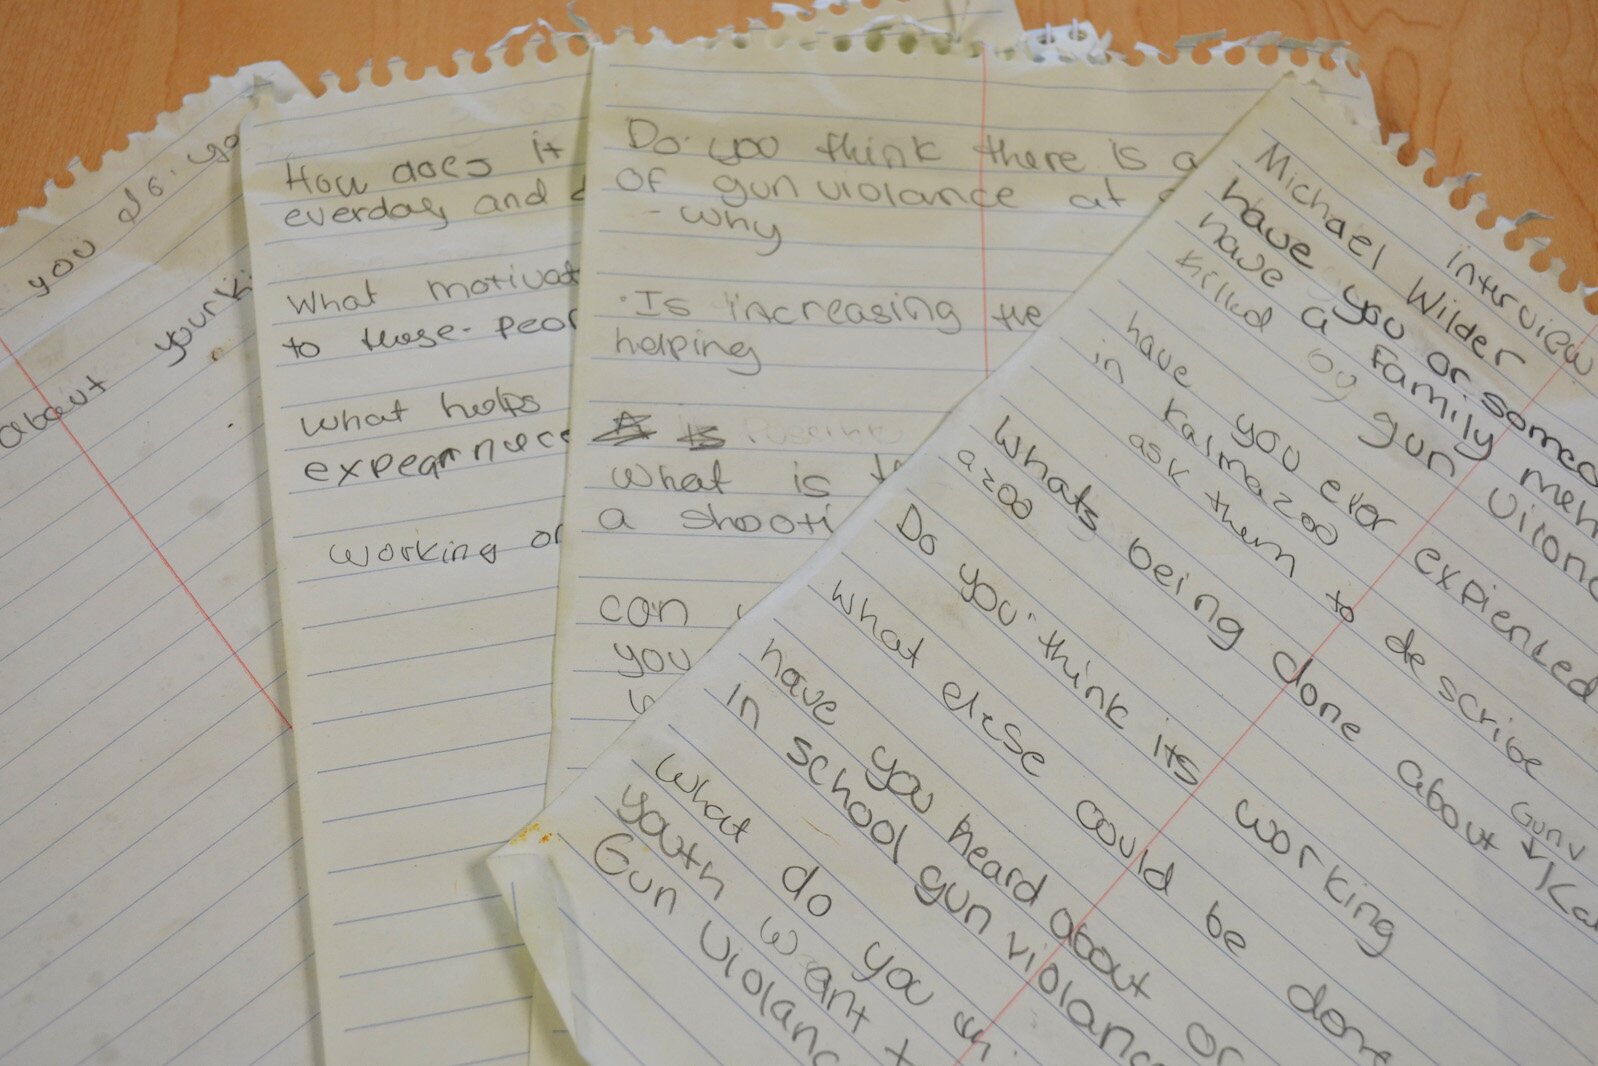 you
about your
How does it
everday and
What motivat
to those peop
what helps
expearnuece
working or
Do you think there is a
of gun violance at
- why
Is increasing the
helping
what is
a shooti
can
you
Michael Wilder interview
have you or someo
have a Family mem
killed by gun violon
have you ever expienced Gunv
in Kalmazoo
ask them to describe
Whats being done about Ka
azoo
Do you think its working
what elese could be done
have you heard about or
in school gun violance
what do you
youth want t
Gun violanc